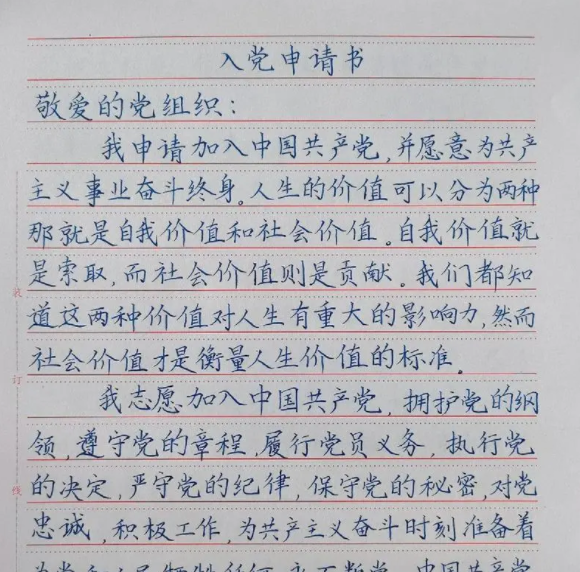 入党申请书
敬爱的党组织：
我申请加入中国共产党，并愿意为共产
主义事业奋斗终身。人生的价值可以分为两种
那就是自我价值和社会价值。自我价值就
是索取，而社会价值则是贡献。我们都知
道这两种价值对人生有重大的影响力，然而
社会价值才是衡量人生价值的标准。
我志愿加入中国共产党，拥护党的纲
领，遵守党的章程，履行党员义务，执行党
的决定，严守党的纪律，保守党的秘密，对党
忠诚，积极工作，为共产主义奋斗时刻准备着
装
订
线